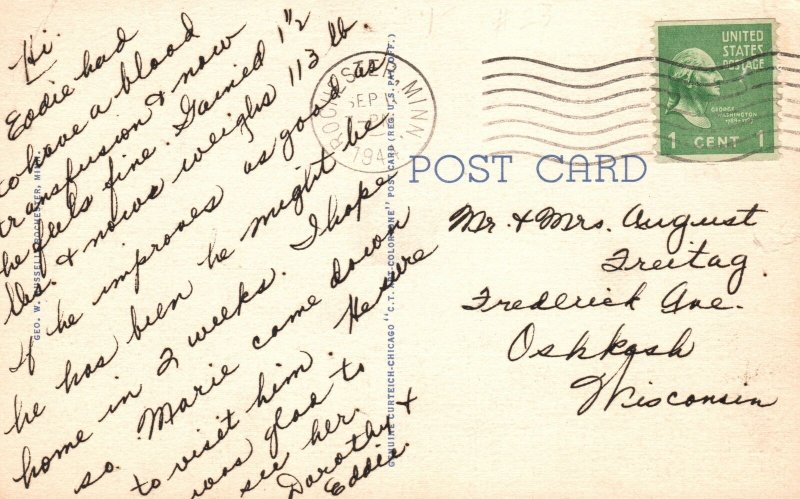 Hi.
Eddie had
to have a blood
transfusion & now
he feels fine. Gained 1½
lbs. & nows weighs 113 lb.
If he improves as good as
he has been he might be
home in 2 weeks. I hope
so. Marie came down
to visit him. He sure
was glad to
see her.
Dorothy &
Eddie.
GEO. W. ROCHESTER,
GENUINE CURTEICH-CHICAGO "C.T. ART-COLORTONE" POST CARD (REG. U.S. PAT. OFF.)
ROCHESTER, MINN
SEP
194
UNITED
STATES
POSTAGE
GEORGE
WASHINGTON
1 CENT 1
POST CARD
Mr. & Mrs. August
Freitag
Frederick Ave.
Oshkosh
Wisconsin